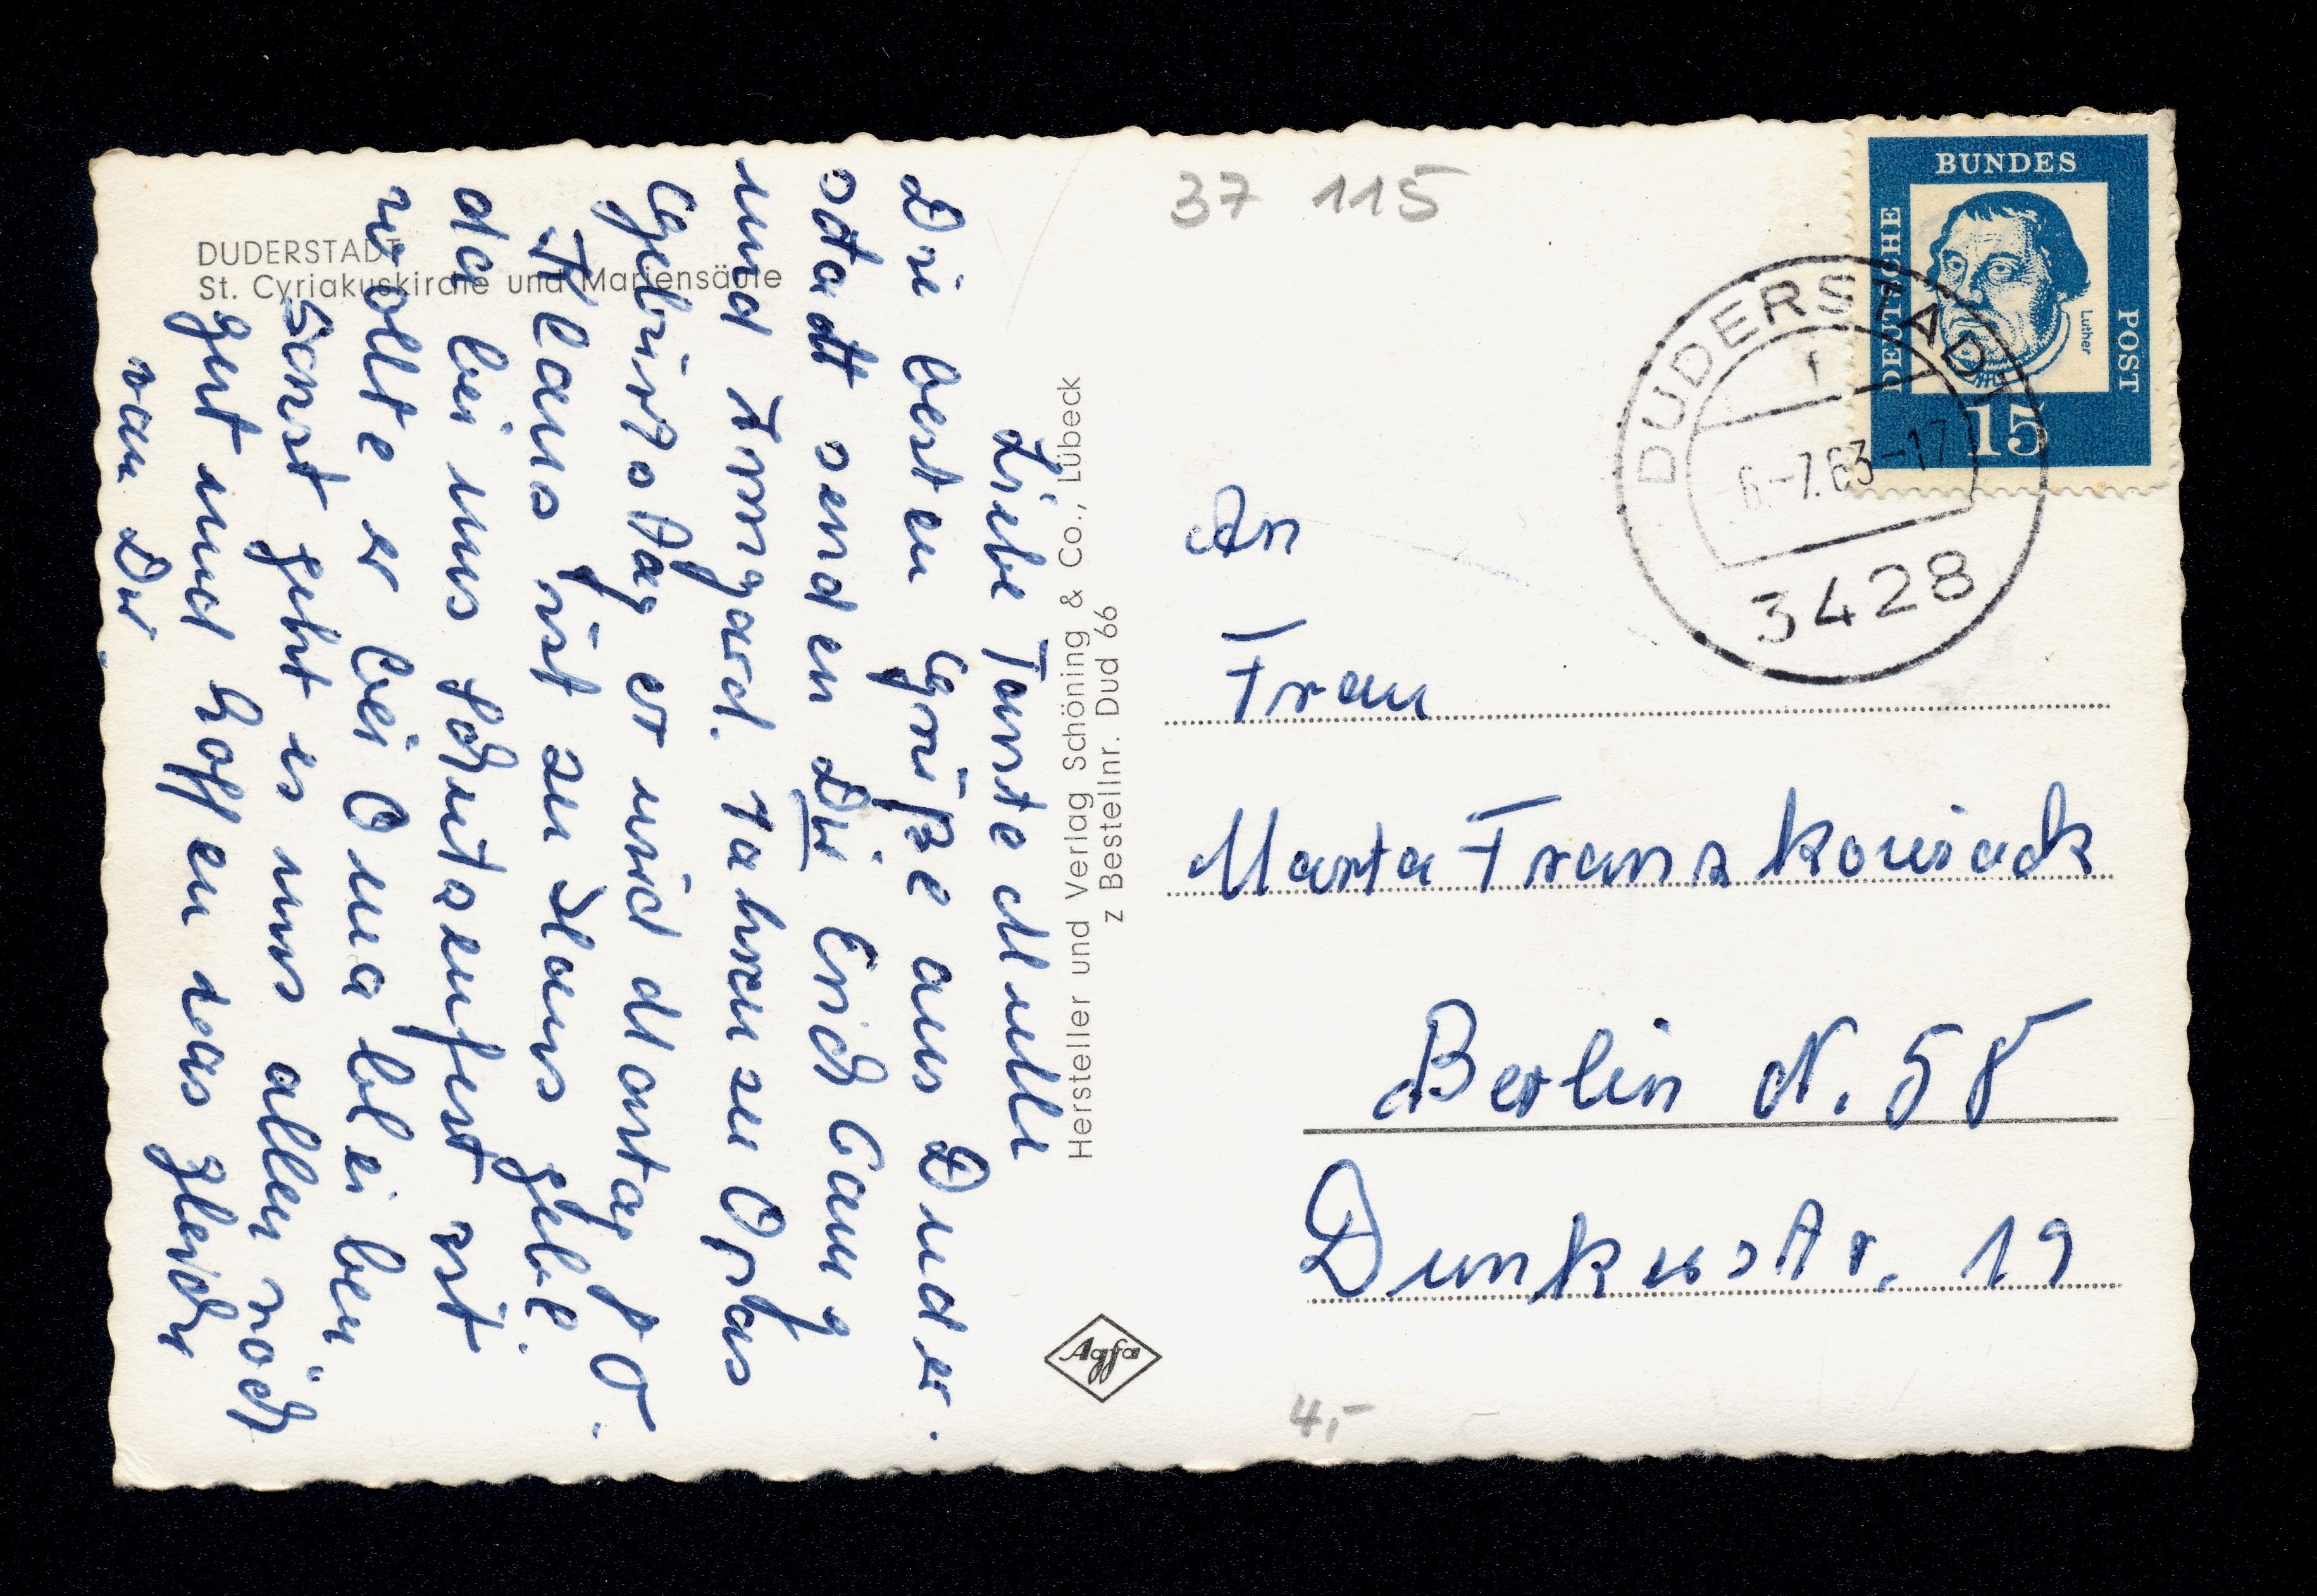 DUDERSTADT
St. Cyriakuskirche und Mariensäule
Liebe Tante
Die besten Grüße aus Duder-
stadt senden Dir Erich Gaung
und Irmgard. Fahren zu Opas
Geburtstag er wird Montag 70.
Klaus ist zu Haus gebl.
da bei uns Schützenfest ist.
wollte er bei Oma bleiben
Sonst geht es uns allen noch
gut und hoffen das gleiche
von Dir.
Hersteller und Verlag Schöning & Co., Lübeck
z Bestellnr. Dud 66
Agfa
37 115
BUNDES
DEUTSCHE
POST
Luther
15
DUDERSTADT
f
6.-7.63-17
3428
An
Frau
Marta Franzkowiack
Berlin N. 58
Dunkerstr. 19
4,-